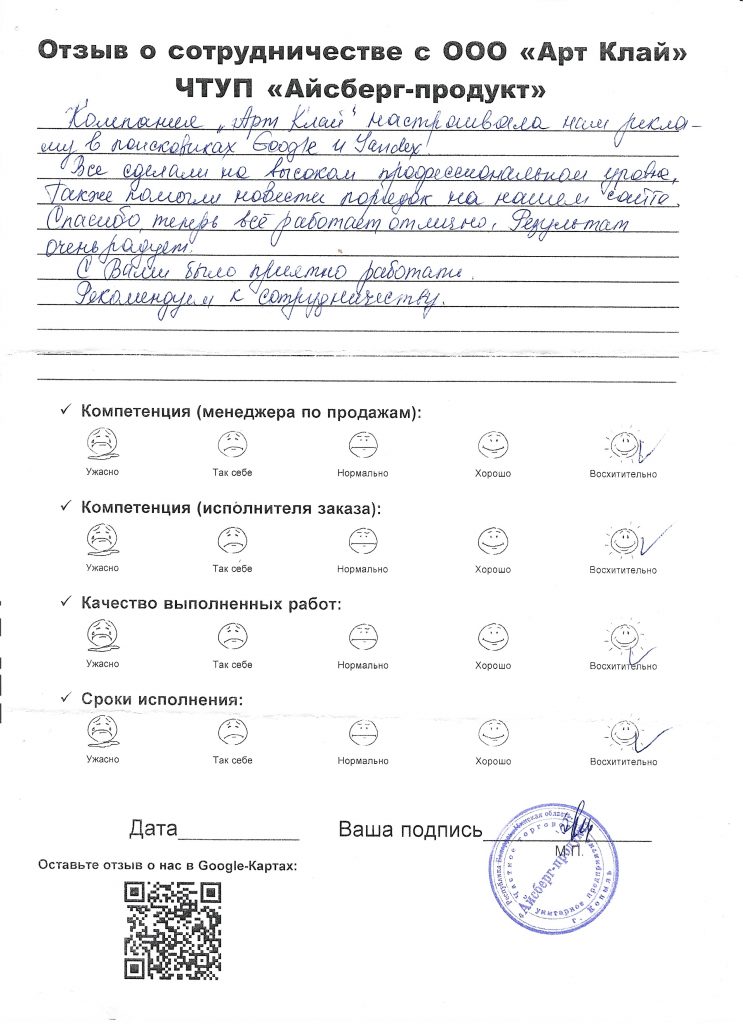 Отзыв о сотрудничестве с ООО «Арт Клай»
ЧТУП «Айсберг-продукт»
Компания „Арт Клай" настраивала нам рекла-
му в поисковиках Google и Yandex
Все сделали на высоком профессиональном уровне,
Также помогли навести порядок на нашем сайте.
Спасибо, теперь всё работает отлично. Результат
очень радует.
С Вами было приятно работать.
Рекомендуем к сотрудничеству.
✓ Компетенция (менеджера по продажам):
Ужасно Так себе Нормально Хорошо Восхитительно
✓ Компетенция (исполнителя заказа):
Ужасно Так себе Нормально Хорошо Восхитительно
✓ Качество выполненных работ:
Ужасно Так себе Нормально Хорошо Восхитительно
✓ Сроки исполнения:
Ужасно Так себе Нормально Хорошо Восхитительно
Дата____________ Ваша подпись________________
М.П.
Айсберг-продукт
Частное торговое
унитарное предприятие
г. Копыль
Оставьте отзыв о нас в Google-Картах: